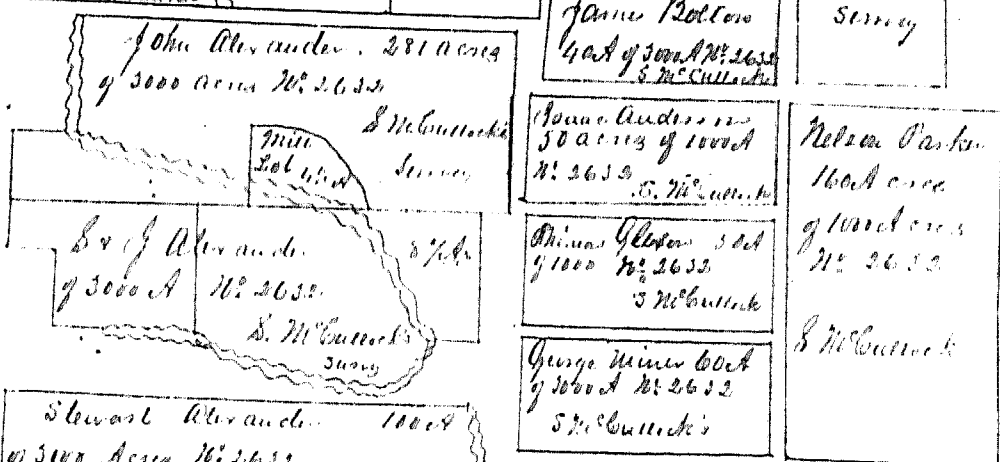 John Alexander. 281 acres
of 3000 acres No. 2632
S McCullock's
Survey
Mill
Lot
S & J Alexander
of 3000 A No. 2632
S. McCullock's
Survey
Stewart Alexander 100 A
of 3000 Acres No. 2632
James Bolton
40 A of 3000 A No. 2632
S McCullock
Survey
Isaac Anderson
50 acres of 1000 A
No. 2632
S. McCullock
Thomas Gleson 50 A
of 1000 No. 2632
S McCullock
George Miner 60 A
of 3000 A No. 2632
S McCullock's
Nelson Parker
160 A acres
of 1000 A acres
No. 2632
S McCullock